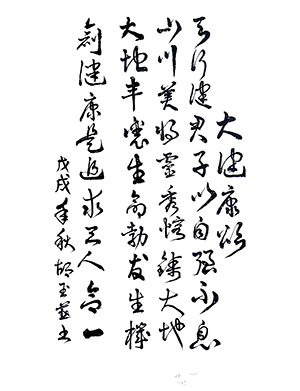 大健康颂
天行健君子以自强不息
山川美好靈秀熔铸大地
大地丰生命勃发生機
創健康是追求天人合一
戊戌年秋胡玉书